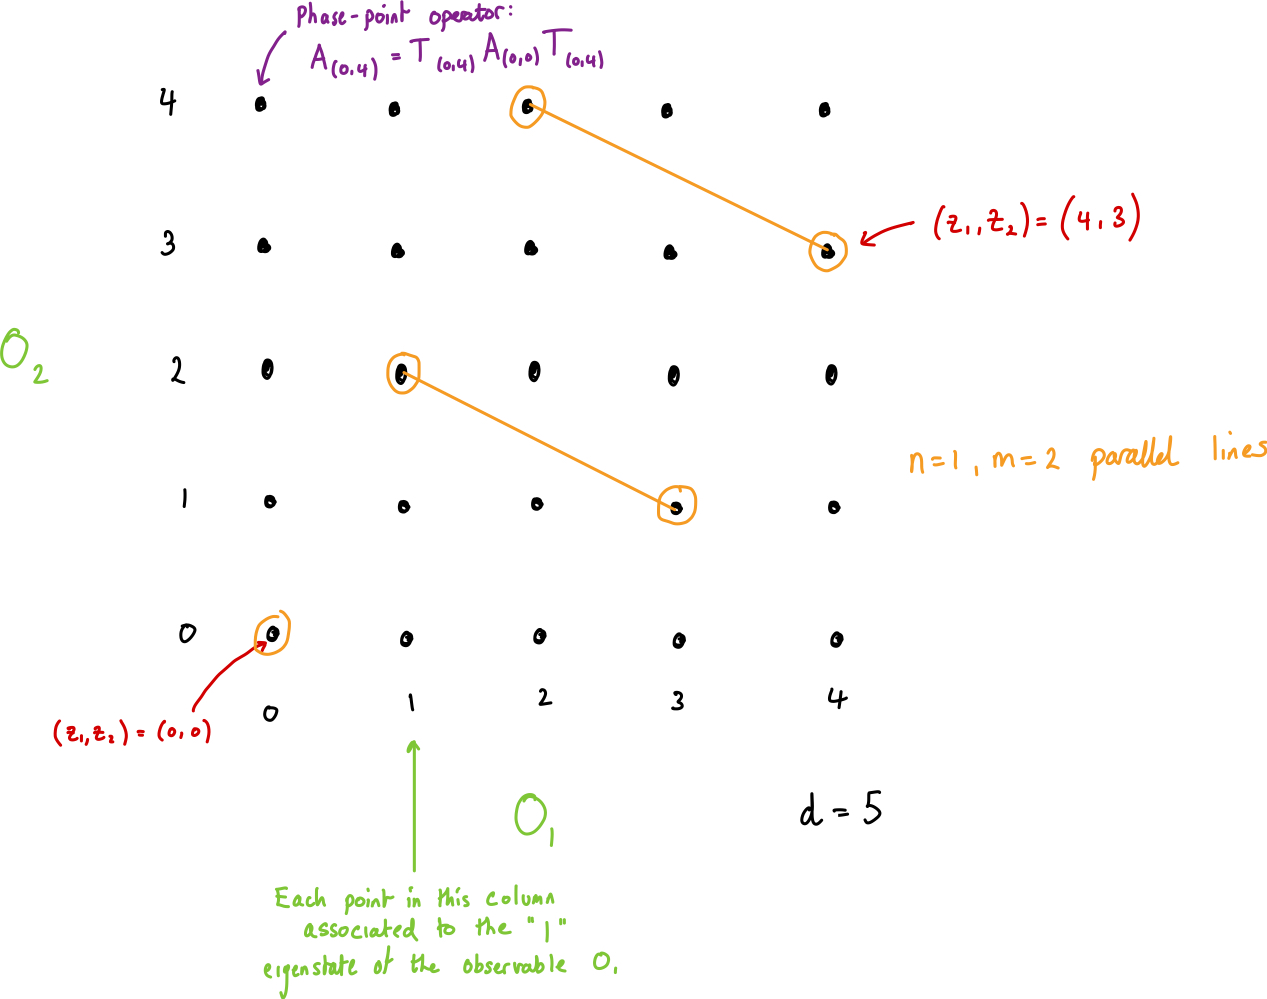 Phase-point operator:
A(0,4) = T(0,4) A(0,0) T(0,4)
4
(z₁,z₂) = (4,3)
3
O₂
2
n=1, m=2 parallel lines
1
0
(z₁,z₂) = (0,0)
0 1 2 3 4
O₁
d = 5
Each point in this column
associated to the "1"
eigenstate of the observable O₁